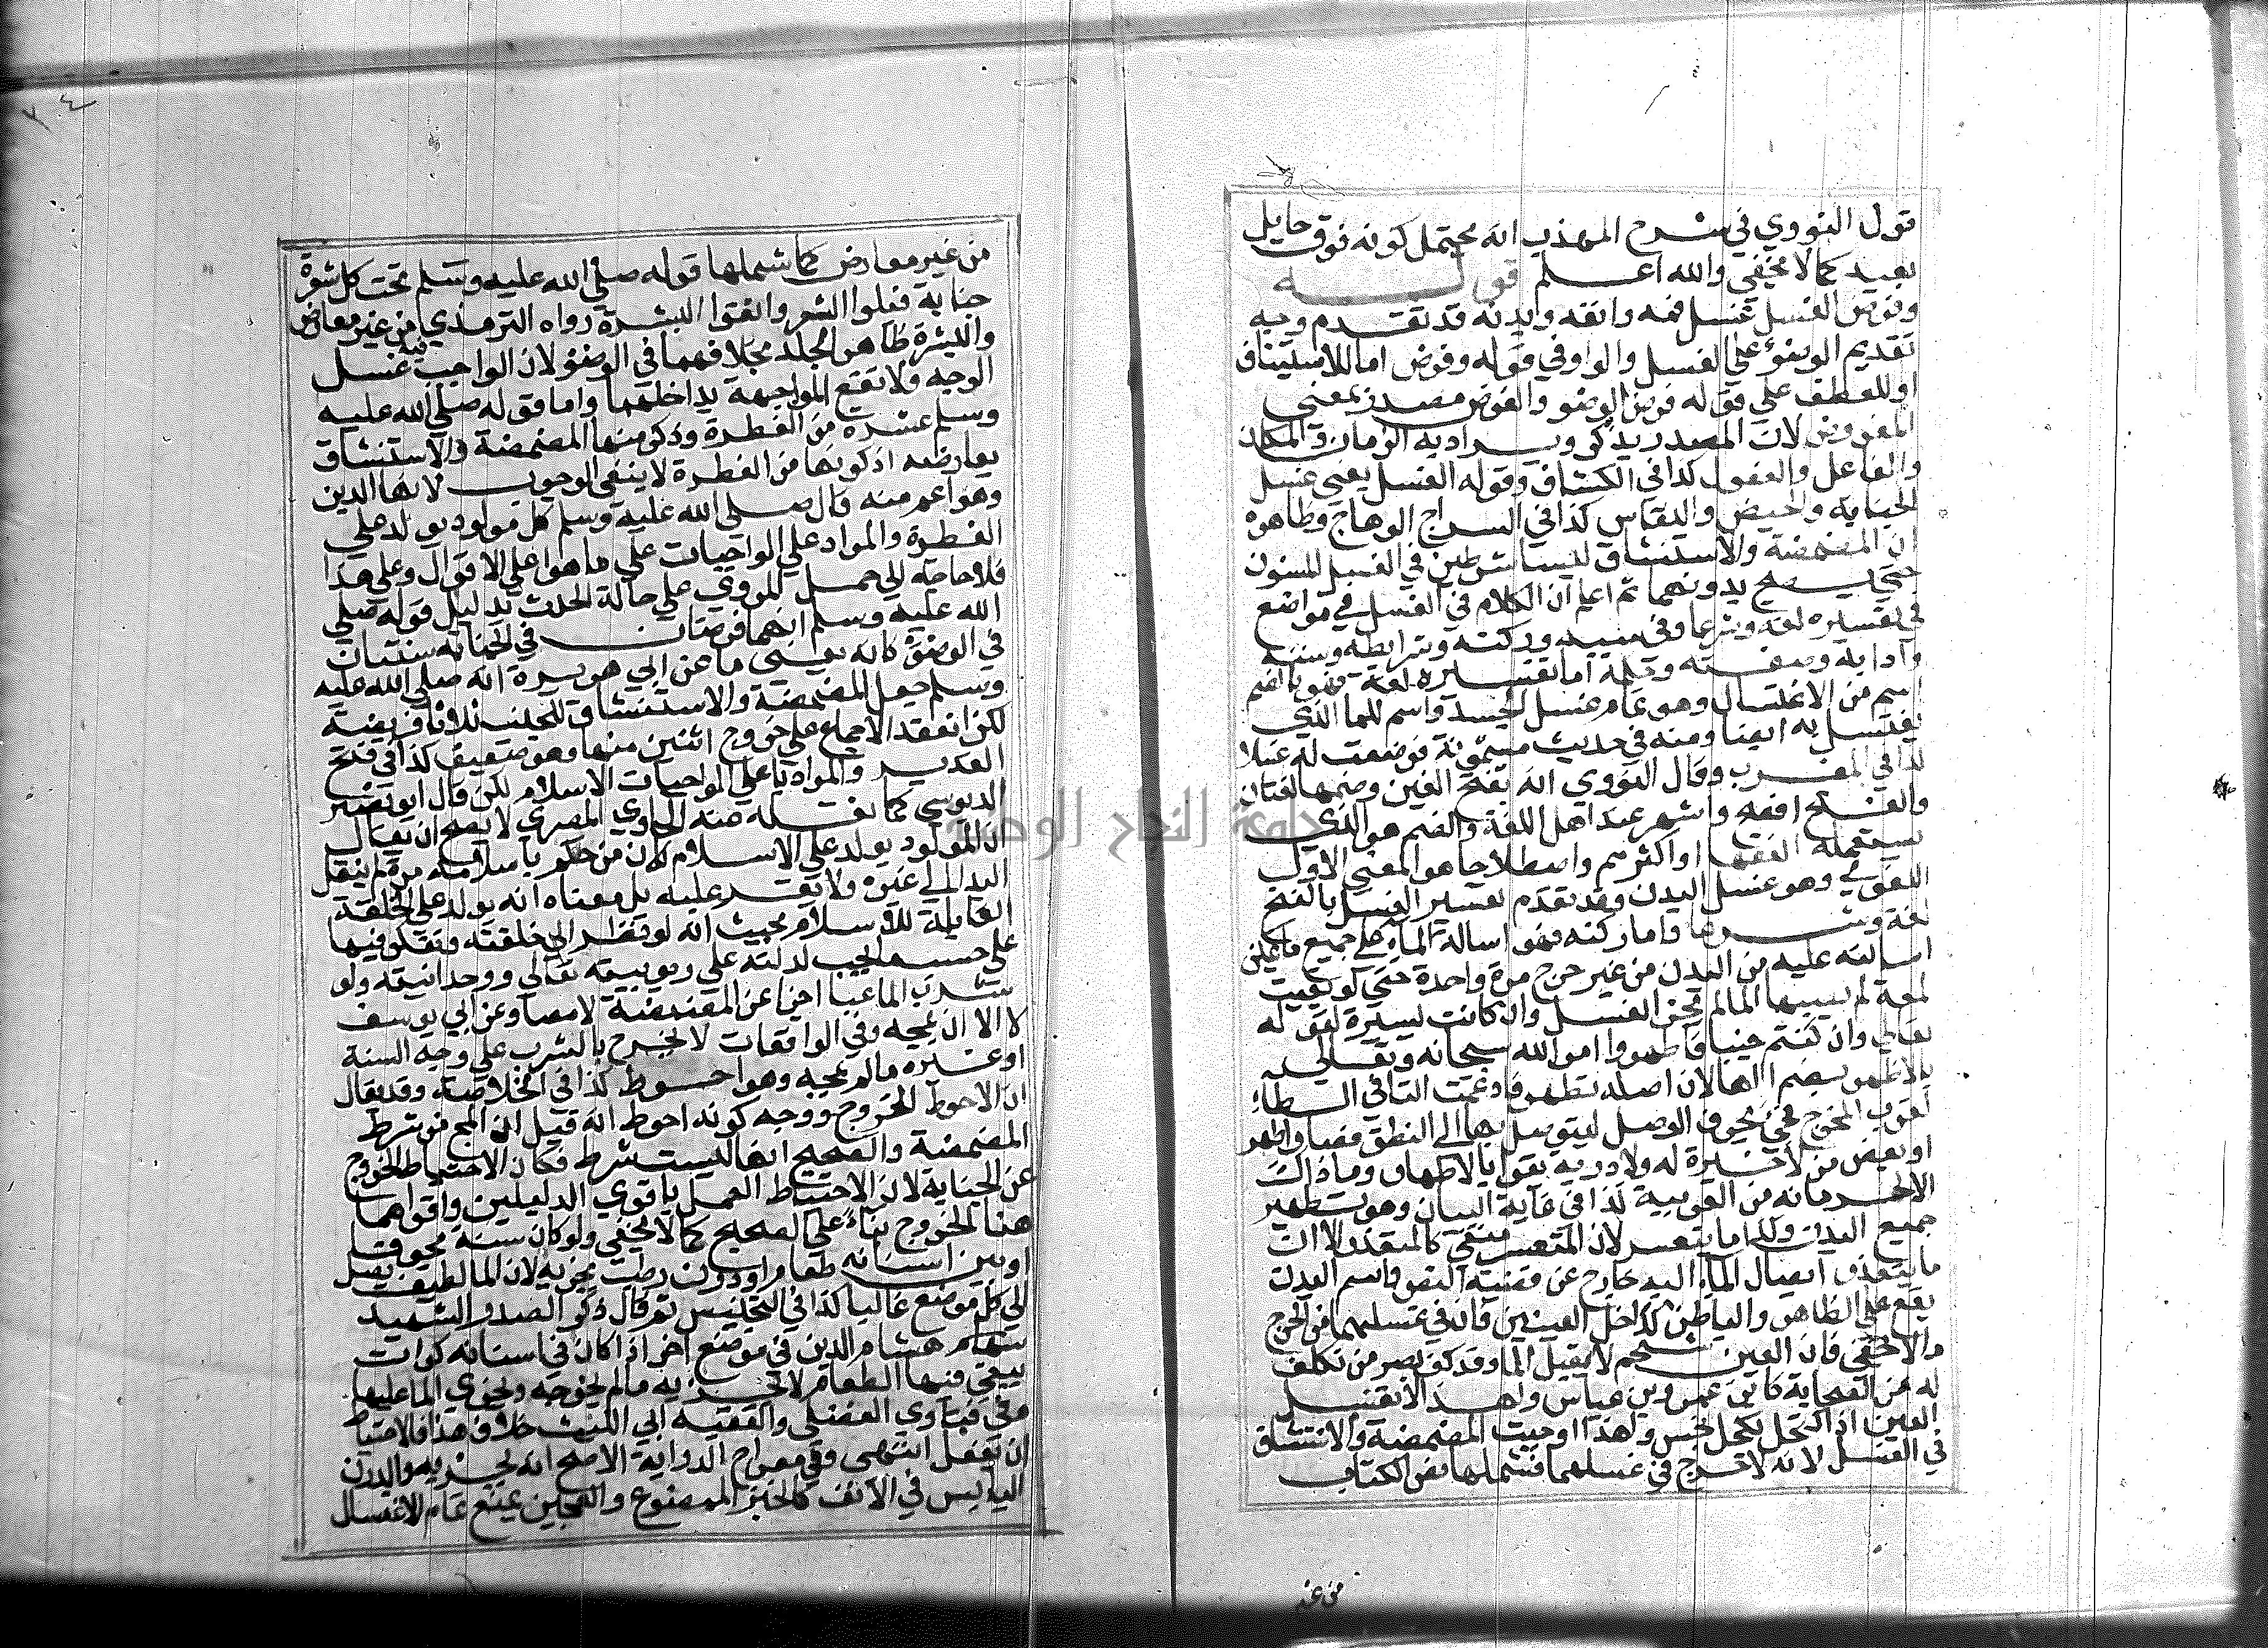 قول النووي في شرح المهذب انه يحتمل كونه فوق حايل
بعيد كما لا يخفي والله اعلم قوله
وفرض الغسل غسل فمه وانفه وبدنه قد تقدم وجه
تقديم الوضوء علي الغسل والواو في قوله وفرض اما للاستيناف
او للعطف علي قوله فرض الوضو والفرض مصدر بمعني
المفروض لان المصدر يذكر ويراد به الزمان والمكان
والفاعل والمفعول كذا في الكشاف وقوله الغسل يعني غسل
الجنابة والحيض والنفاس كذا في السراج الوهاج وظاهره
ان المضمضة والاستنشاق ليستا شرطين في الغسل المسنون
حتي يصح بدونهما ثم اعلم ان الكلام في الغسل في مواضع
في تفسيره لغة وشرعا وفي سببه وركنه وشرايطه وسننه
وادابه وصفته وحكمه اما تفسيره لغة فهو بالضم
اسم من الاغتسال وهو تمام غسل الجسد واسم للما الذي
يغتسل به ايضا ومنه في حديث ميمونة فوضعت له غسلا
كذا في المغرب وقال النووي انه بفتح الغين وضمها لغتان
والفتح افصح واشهر عند اهل اللغة والضم هو الذي
يستعمله الفقها او اكثرهم واصطلاحا هو المعني الاول
اللغوي وهو غسل البدن وقد تقدم تفسير الغسل بالفتح
لغة وشرعا واما ركنه فهو اسالة الماء علي جميع ما يمكن
اسالته عليه من البدن من غير حرج مرة واحدة حتي لو بقيت
لمعة لم يصبها الما لم يجز الغسل وان كانت يسيرة لقوله
تعالي وان كنتم جنبا فاطهروا امر الله سبحانه وتعالي
بالاطهر بضم الها لان اصله تطهر فادغمت التا في الطا
لقرب المخرج فجي بحرف الوصل ليتوصل بها الي النطق فصار اطهر
او بعض من لا خبرة له ولا دربة يقول بالاطهار وما ذاك
الا لحرمانه من العربية كذا في غاية البيان وهو تطهير
جميع البدن ولكن ما يتعسر لان المتعسر منتفي كالمتعذر الا ان
ما يتعذر ايصال الماء اليه خارج عن قضية النص واسم البدن
يقع علي الظاهر والباطن كداخل العينين فان في غسلهما من الحرج
ما لا يخفي فان العين شحم لا يقبل الما وقد كف بصر من تكلف
له من الصحابة كابن عمر وبن عباس ولهذا لا تغسل
العين اذا اكتحل بكحل نجس ولهذا وجبت المضمضة والاستنشاق
في الغسل لانه لا حرج في غسلهما فشملها نص الكتاب
من غير
من غير معارض كما شملها قوله صلي الله عليه وسلم تحت كل شعرة
جنابة فبلوا الشعر وانقوا البشرة رواه الترمذي من غير معارض
والبشرة ظاهر الجلد بخلافهما في الوضو لان الواجب فيه غسل
الوجه ولا تقع المواجهة بداخلهما واما قوله صلي الله عليه
وسلم عشرة من الفطرة وذكر منها المضمضة والاستنشاق
يعارضه اذ كونها من الفطرة لا ينفي الوجوب لانها الدين
وهو اعم منه قال صلي الله عليه وسلم كل مولود يولد علي
الفطرة والمراد علي الواجبات علي ما هو اعلي الاقوال وعلي هذا
فلا حاجة الي حمل المروي علي حالة الحدث بدليل قوله صلي
الله عليه وسلم انهما فرضان في الجنابة سنتان
في الوضوء كانه يعني ما عن ابي هريرة انه صلي الله عليه
وسلم جعل المضمضة والاستنشاق للجنب ثلاثا فريضة
لكن انعقد الاجماع علي خروج اثنين منها وهو ضعيف كذا في فتح
القدير والمراد باعلي الواجبات الاسلام لكن قال ابو نصر
الدبوسي كما نقله عنه الحاوي الحصري لا يصح ان يقال
ان المولود يولد علي الاسلام لان من حكم باسلامه مرة لم ينقل
ابدا الي غيره ولا يقر عليه بل معناه انه يولد علي الخلقة
القابلة للاسلام بحيث انه لو نظر الي خلقته وتفكر فيها
علي حسب ما يجب لدلته علي ربوبيته تعالي ووحدانيته ولو
شرب الما عبا اجزا عن المضمضة لا مصا وعن ابي يوسف
لا الا ان يمجه وفي الواقعات لا يخرج بالشرب علي وجه السنة
او غيره ما لم يمجه وهو احوط كذا في الخلاصة وقد يقال
ان الاحوط الخروج ووجه كونه احوط انه قيل ان المج من شرط
المضمضة والصحيح انها ليست شرط فكان الاحتياط الخروج
عن الجنابة لان الاحتياط العمل باقوي الدليلين واقواهما
هنا الخروج بناء علي الصحيح كما لا يخفي ولو كان سنه مجوفا
او بين اسنانه طعام او درن رطب يجزيه لان الما لطيف يصل
الي كل موضع غالبا كذا في التجنيس ثم قال ذكر الصدر الشهيد
حسام الدين في موضع اخر اذا كان في اسنانه كوات
يبقي فيها الطعام لا يجزيه ما لم يخرجه ويجري الما عليها
وفي فتاوي الفضلي والفقيه ابي الليث خلاف هذا فالاحتياط
ان يفعل انتهي وفي معراج الدراية الاصح انه يجزيه والدرن
اليابس في الانف كالخبز الممضوغ والعجين يمنع تمام الاغتسال